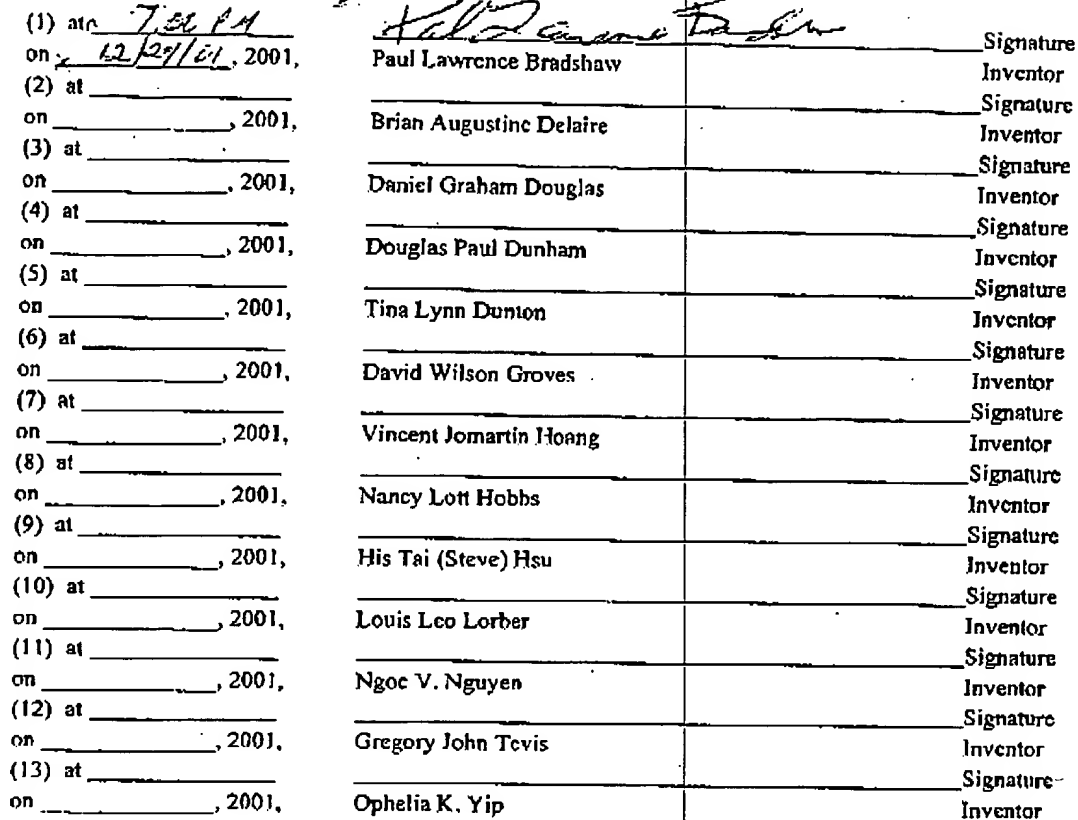 (1) at 7:00 PM Signature
on 12/29/01, 2001, Paul Lawrence Bradshaw Inventor
(2) at Signature
on , 2001, Brian Augustine Delaire Inventor
(3) at Signature
on , 2001, Daniel Graham Douglas Inventor
(4) at Signature
on , 2001, Douglas Paul Dunham Inventor
(5) at Signature
on , 2001, Tina Lynn Dunton Inventor
(6) at Signature
on , 2001, David Wilson Groves Inventor
(7) at Signature
on , 2001, Vincent Jomartin Hoang Inventor
(8) at Signature
on , 2001, Nancy Lott Hobbs Inventor
(9) at Signature
on , 2001, His Tai (Steve) Hsu Inventor
(10) at Signature
on , 2001, Louis Leo Lorber Inventor
(11) at Signature
on , 2001, Ngoc V. Nguyen Inventor
(12) at Signature
on , 2001, Gregory John Tevis Inventor
(13) at Signature
on , 2001, Ophelia K. Yip Inventor